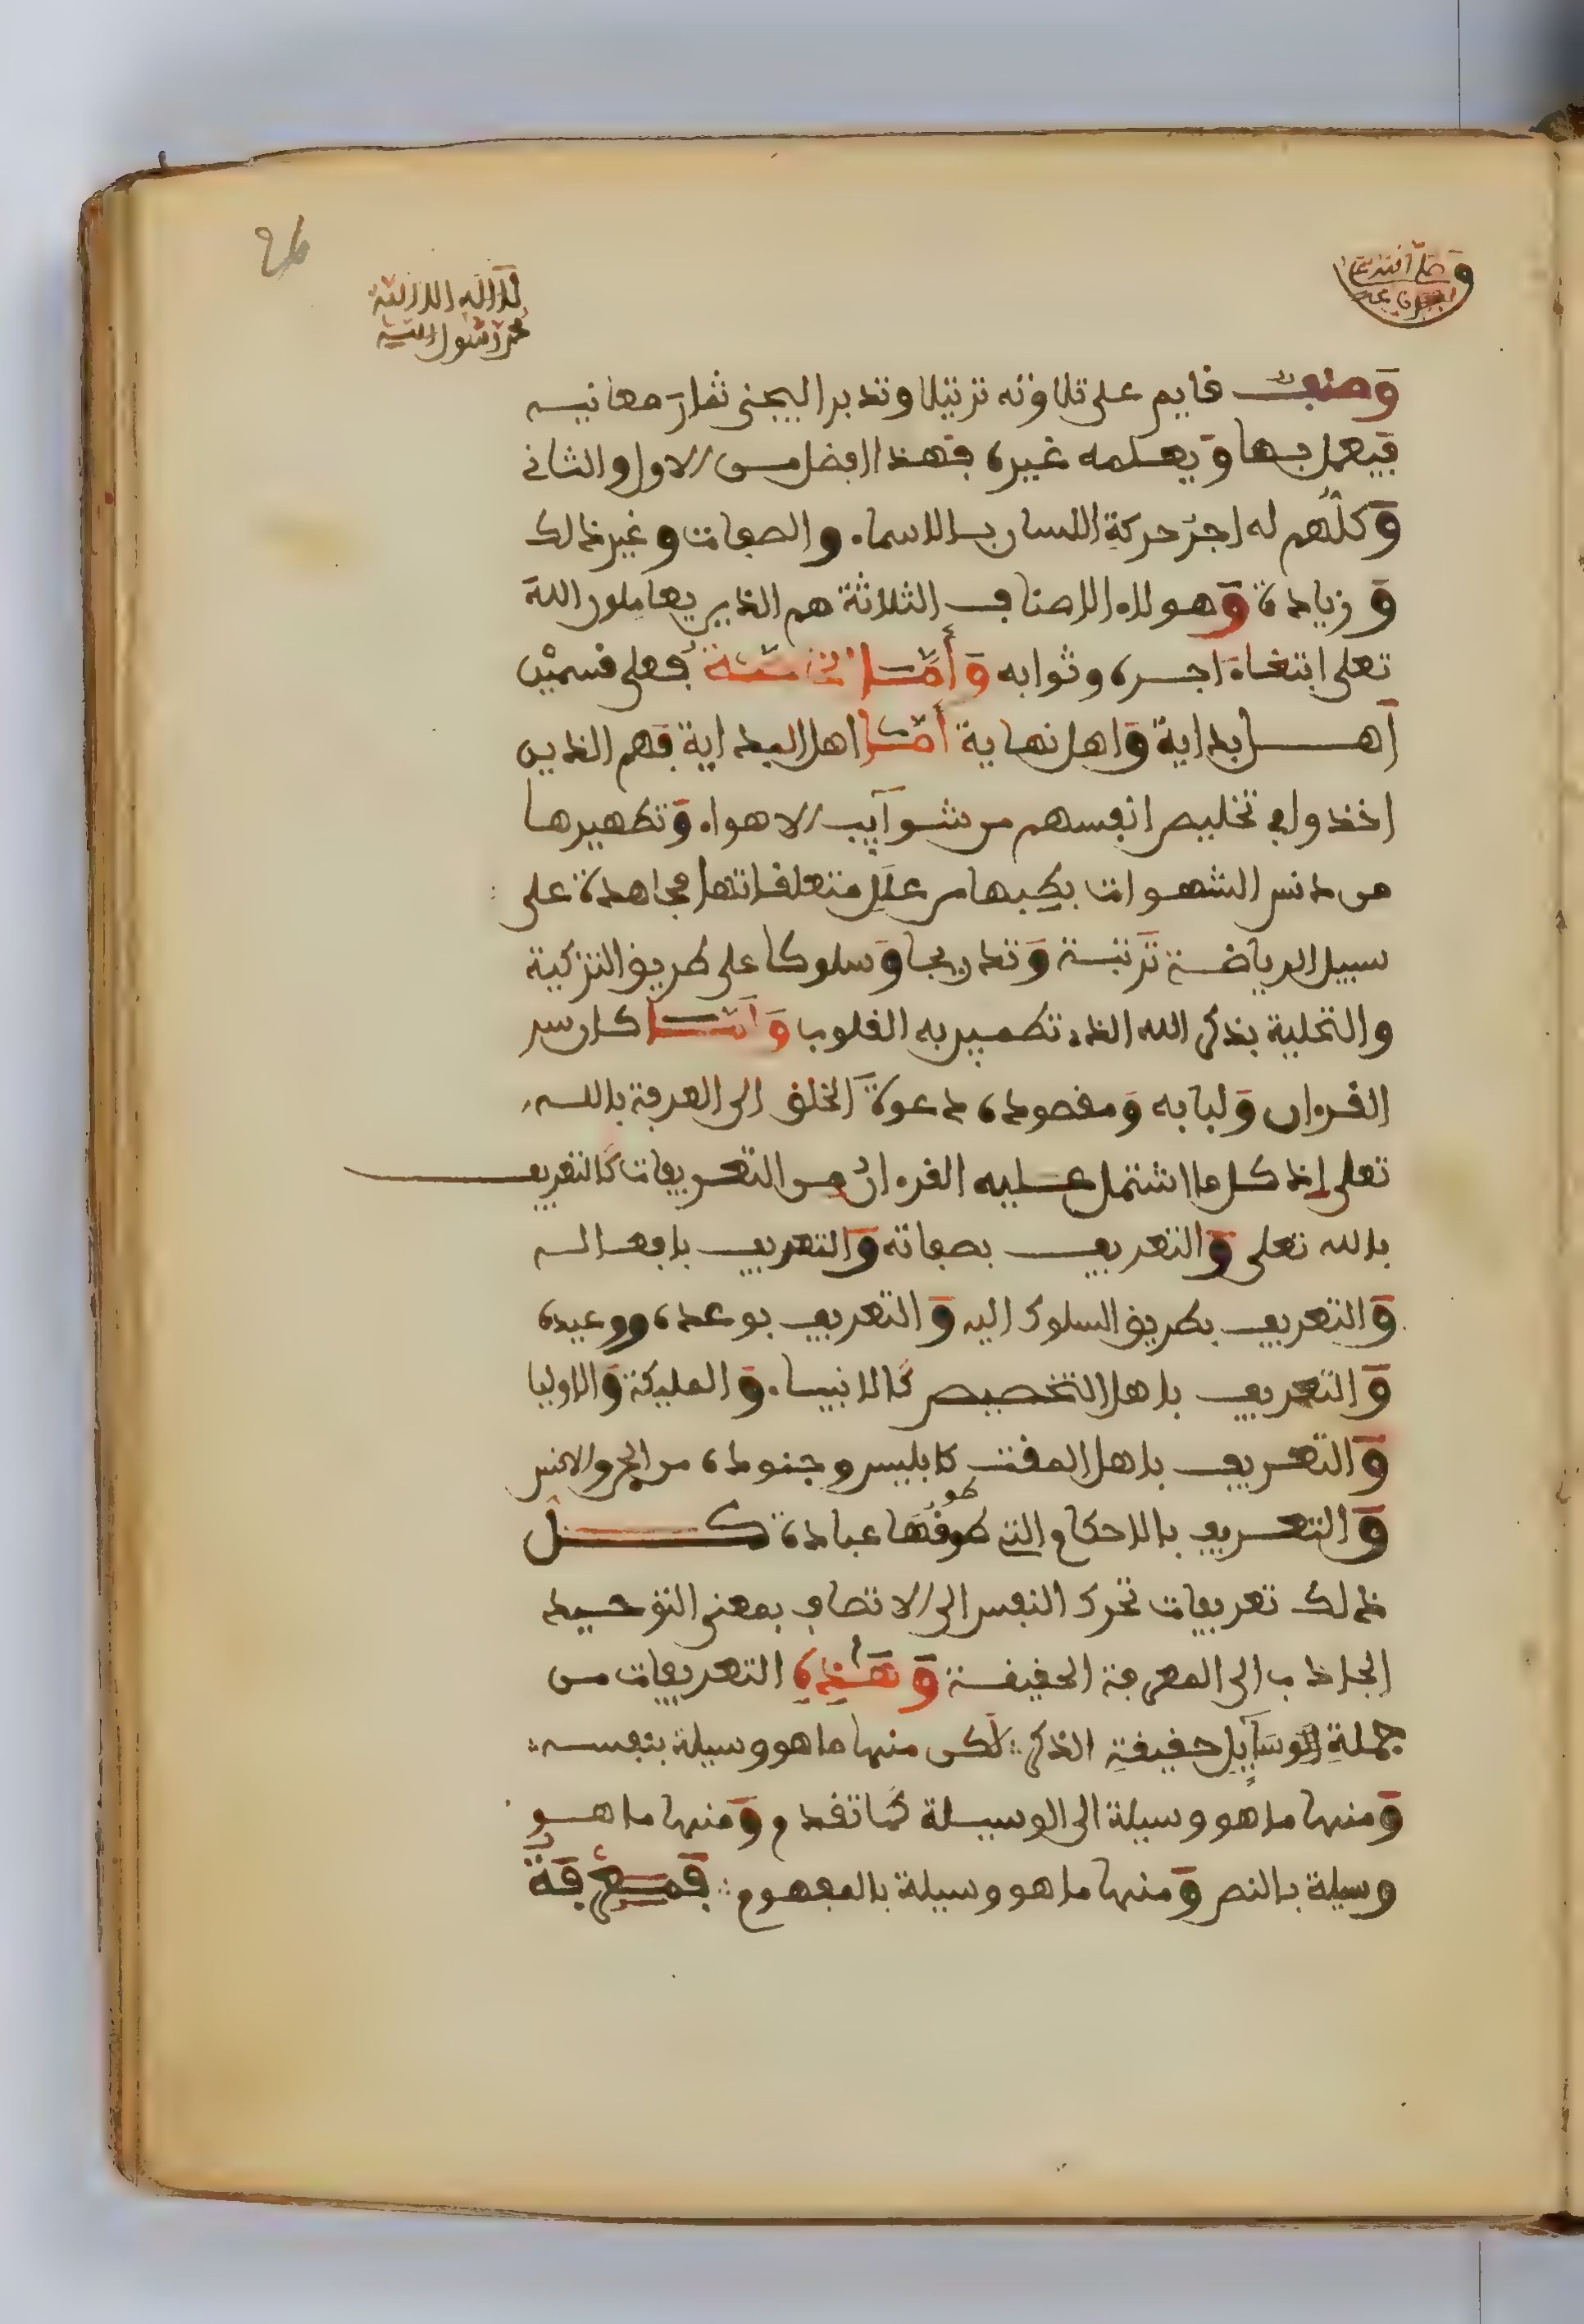 لا اله الا الله
محمد رسول الله
وصنف قايم على تلاوته ترتيلا وتدبرا ليجنى ثمار معانيه
فيعمل بها ويعلمه غيره فهذا افضل من الاول والثاني
وكلهم له اجر حركة اللسان بالاسماء والصفات وغير ذالك
وزيادة وهولاء الاصناف الثلاثة هم الذين يعاملون الله
تعلى ابتغاء اجره وثوابه وأما الخاصة فعلى قسمين
اهل بداية واهل نهاية أما اهل البداية فهم الذين
اخذوا في تخليص انفسهم من شوآيب الاهواء وتطهيرها
من دنس الشهوات بكبها من علل متعلقاتها مجاهدة على
سبيل الرياضة تربية وتدريجا وسلوكا على طريق التزكية
والتحلية بذكر الله الذي تطمين به القلوب وانما كان سر
القرءان ولبابه ومقصوده دعوة الخلق الى المعرفة بالله
تعلى إذ كل ما اشتمل عليه القرءان من التعريفات كالتعريف
بالله تعلى والتعريف بصفاته والتعريف بافعاله
والتعريف بطريق السلوك اليه والتعريف بوعده ووعيده
والتعريف باهل التخصيص كالانبياء والمليكة والاوليا
والتعريف باهل المقت كابليس وجنوده من الجن والانس
والتعريف بالاحكام التي طوقها عباده كل
ذلك تعريفات تحرك النفس الى الاتصاف بمعنى التوحيد
الجاذب الى المعرفة الحقيقة وهذه التعريفات من
جملة الوسآيل حقيقة الذكر لكن منها ما هو وسيلة بنفسه
ومنها ما هو وسيلة الى الوسيلة كما تقدم ومنها ما هو
وسيلة بالنص ومنها ما هو وسيلة بالمفهوم فمعرفة